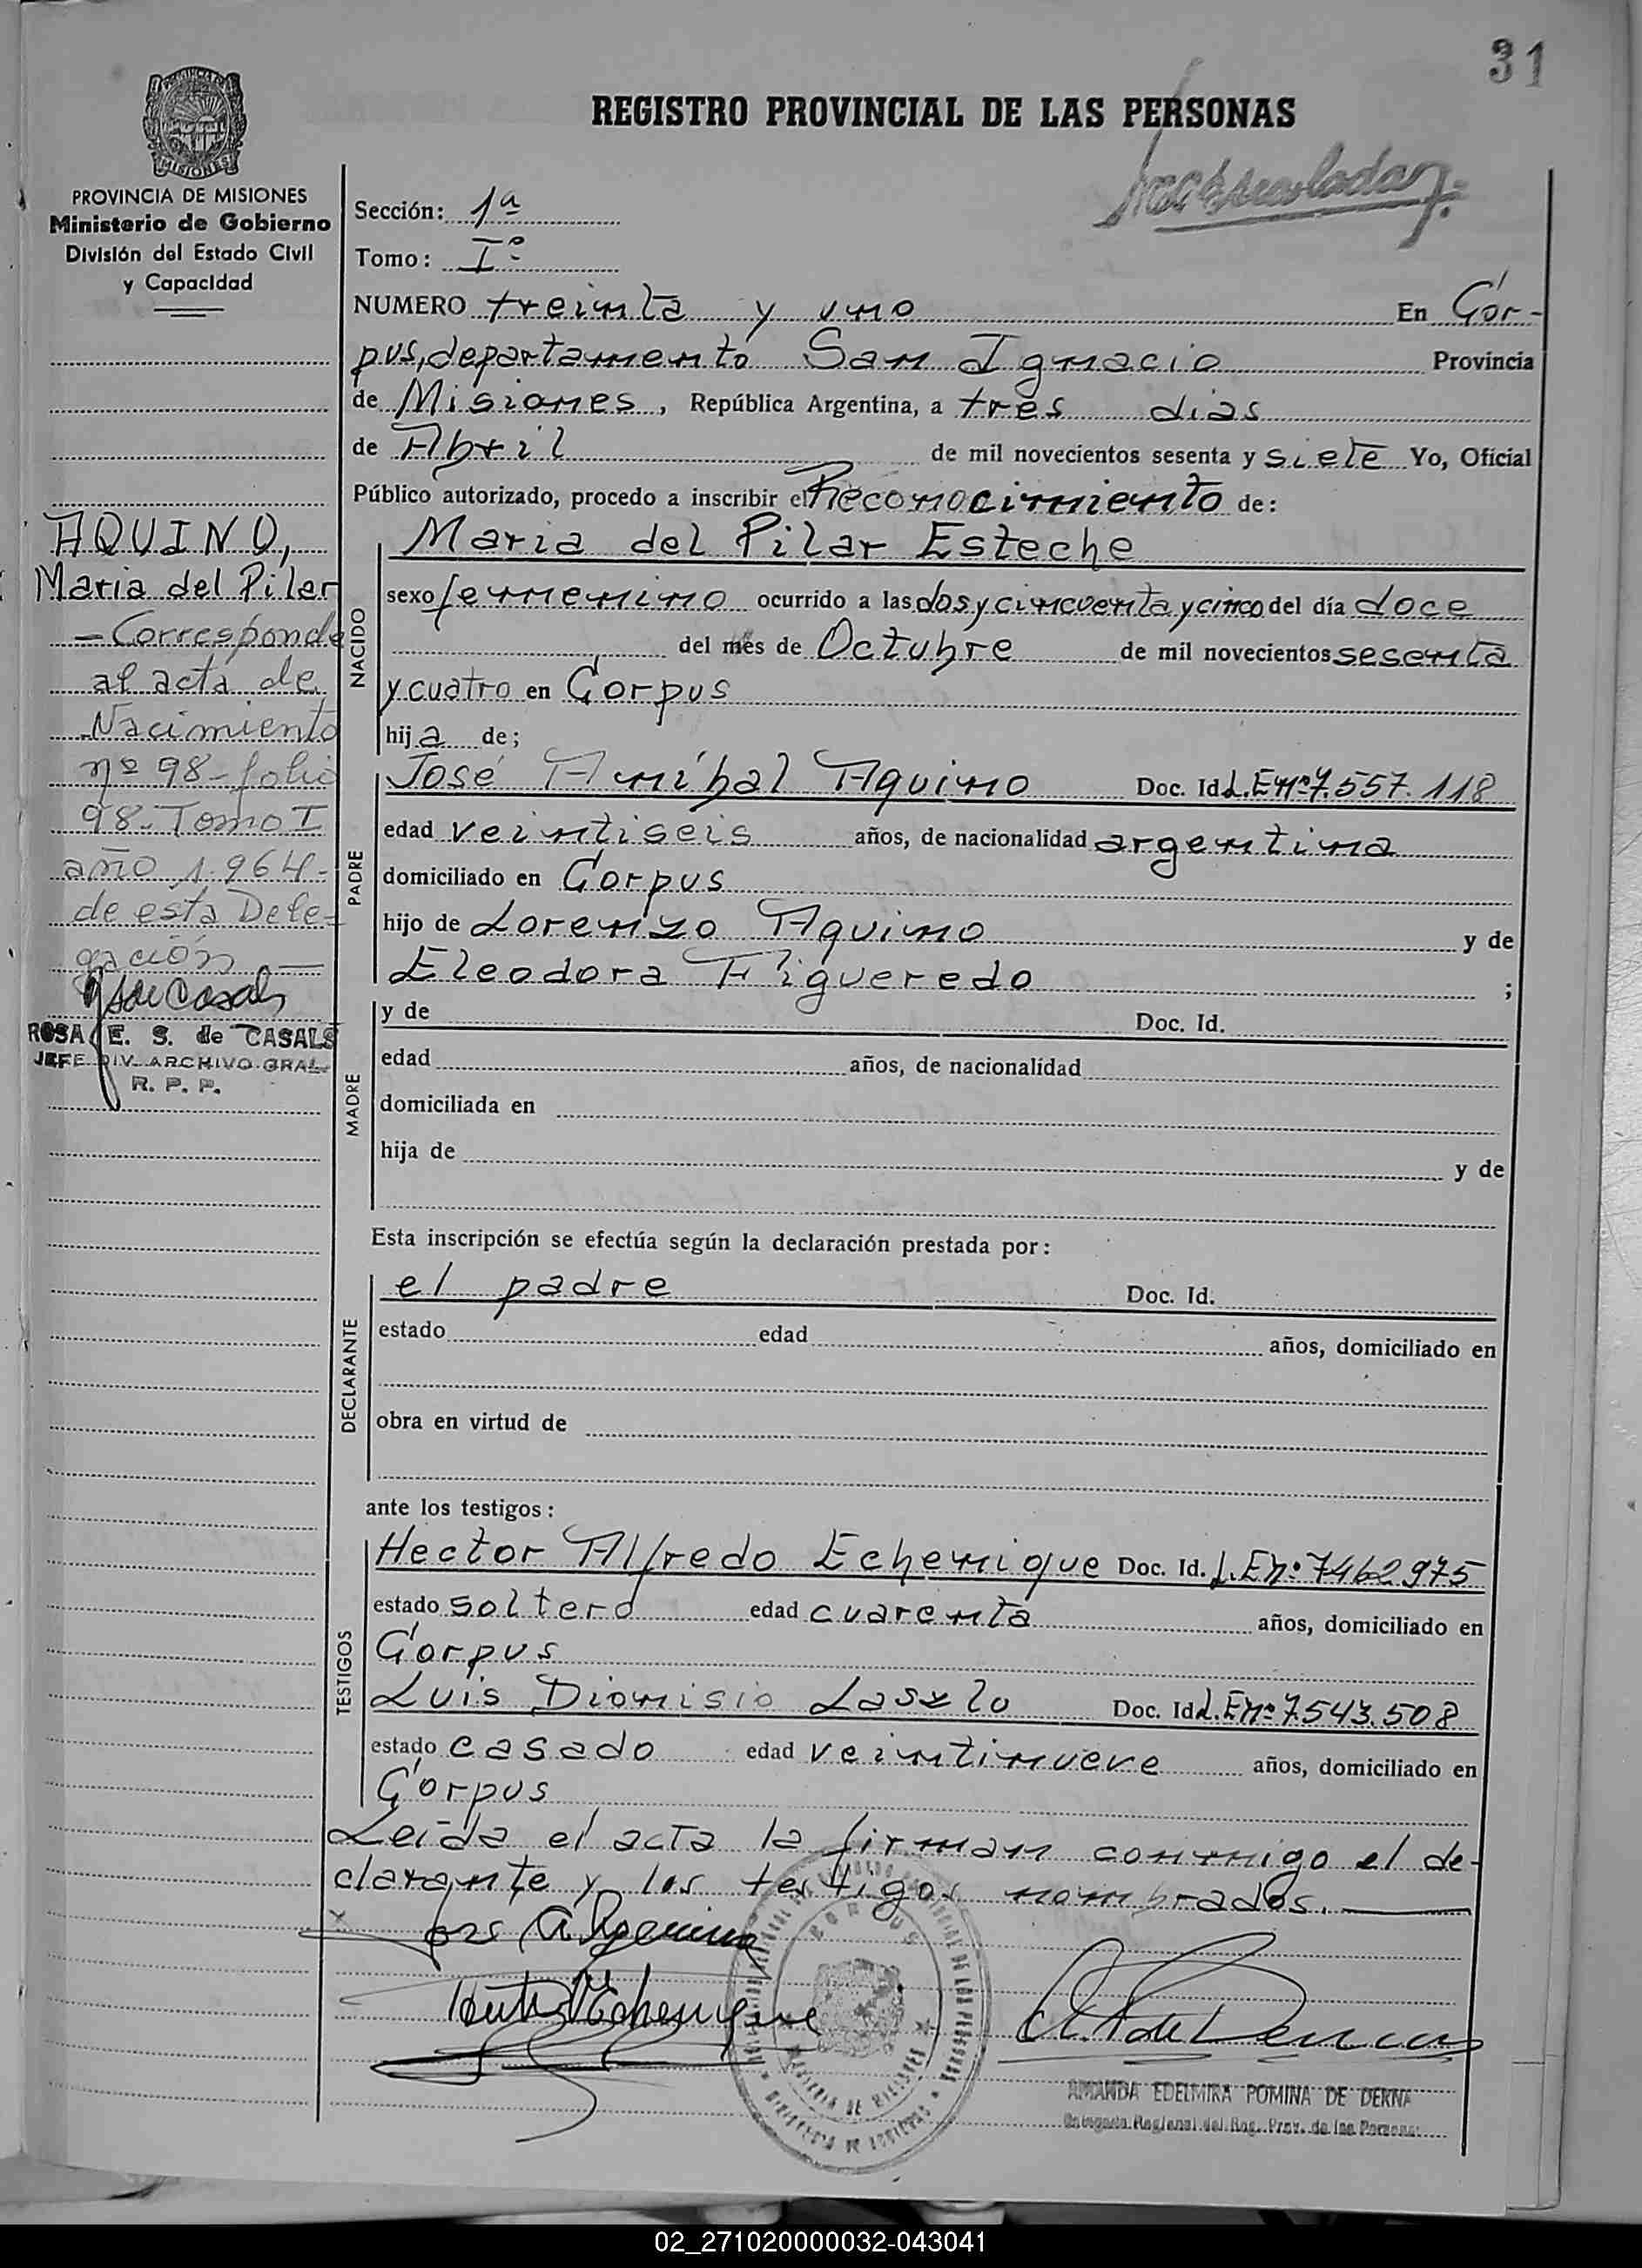 31
REGISTRO PROVINCIAL DE LAS PERSONAS
MISIONES
PROVINCIA DE MISIONES
Ministerio de Gobierno
División del Estado Civil
y Capacidad
AQUINO,
Maria del Pilar
- Corresponde
al acta de
Nacimiento
nº 98 - folio
98 - Tomo I
año 1.964 -
de esta Dele-
gación —
ROSA E. S. de CASALS
JEFE DIV. ARCHIVO GRAL.
R. P. P.
Sección: 1ª
Tomo: Iº
NUMERO treinta y uno En Cor-
pus, departamento San Ignacio Provincia
de Misiones, República Argentina, a tres dias
de Abril de mil novecientos sesenta y siete Yo, Oficial
Público autorizado, procedo a inscribir el Reconocimiento de:
NACIDO
Maria del Pilar Esteche
sexo femenino ocurrido a las dos y cincuenta y cinco del día doce
del mes de Octubre de mil novecientos sesenta
y cuatro en Corpus
hija de;
PADRE
José Aníbal Aquino Doc. Id. L.E nº 7.557.118
edad veintiseis años, de nacionalidad argentina
domiciliado en Corpus
hijo de Lorenzo Aquino y de
Eleodora Figueredo ;
MADRE
y de Doc. Id.
edad años, de nacionalidad
domiciliada en
hija de y de
Esta inscripción se efectúa según la declaración prestada por:
DECLARANTE
el padre Doc. Id.
estado edad años, domiciliado en
obra en virtud de
ante los testigos:
TESTIGOS
Hector Alfredo Echenique Doc. Id. L.E nº 7462975
estado soltero edad cuarenta años, domiciliado en
Corpus
Luis Dionisio Doc. Id. L.E nº 7.543.508
estado casado edad veintinueve años, domiciliado en
Corpus
Leída el acta la firman conmigo el de-
clarante y los testigos nombrados.
AMANDA EDELMIRA POMINA DE DERNA
Delegada Regional del Reg. Prov. de las Personas
02_271020000032-043041